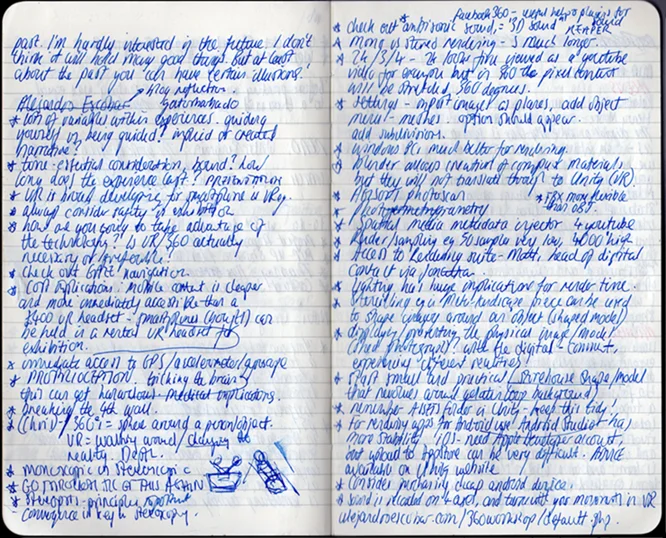 past. I'm hardly interested in the future. I don't
think it will hold many good things. But at least
about the past you can have certain illusions!
Alejandro Escobar
* lots of variables within experiences. guiding
yourself or being guided? implied or created
narrative?
* time - essential consideration, bored? how
long does the experience last?
* VR is broad developing for smartphone is VRy.
* always consider safety in exhibition
* how are you going to take advantage of
the technology? Is VR/360 actually
necessary or preferable?
* check out navigation.
* cost implications: mobile content is cheaper
and more immediately accessible than a
£400 VR headset - smartphones can
be held in a rental VR headset for
exhibition.
* immediate access to GPS/accelerometer/gyroscope
* PROPRIOCEPTION. tricking the brain,
this can get hazardous - medical implications.
* breaking the 4th wall.
* (Chris) - 360° = sphere around a person/object.
VR = walking around/changing the
reality. DEPT.
* monoscopic vs stereoscopic
* GO THROUGH ALL OF THIS AGAIN
* stereopsis - principles
- convergence is key in stereoscopy.
Facebook 360 - useful plugins for
REAPER
* check out ambisonic sound, = 3D sound
* mono vs stereo rendering - S much longer.
video for example but in 360 the pixel content
will be stretched 360 degrees.
* settings - import images as planes, add object
menu - meshes - option should appear.
add subdivisions.
* windows PCs much better for rendering.
* blender allows creation of complex materials
but they will not translate through to Unity (VR).
* Agisoft photoscan
more flexible
* Photogrammetry
* Spatial media metadata injector 4 youtube
* Render sampling eg 50 samples very low, 4000 high
* Access to rendering suite - Matt, head of digital
contact via Jonathan.
* lighting has huge implications for render time.
* Stretching eg a Miro landscape piece can be used
to shape around an object (shaped model)
* displaying/presenting the physical image/model
with the digital - connect,
experiencing different realities
* start small and practical (storehouse shape/model
that revolves around gelatin loop background)
* remember ASSETS folder in Unity - keep this tidy!
* For rendering apps for Android use Android Studio - has
more stability. iOS - need Apple Developer account,
but upload to AppStore can be very difficult. ADVICE
available on Unity website
* Consider purchasing cheap android device.
* sound is recorded on, and turns with your movements in VR
alejandroescobar.com/360workshop/default.php.